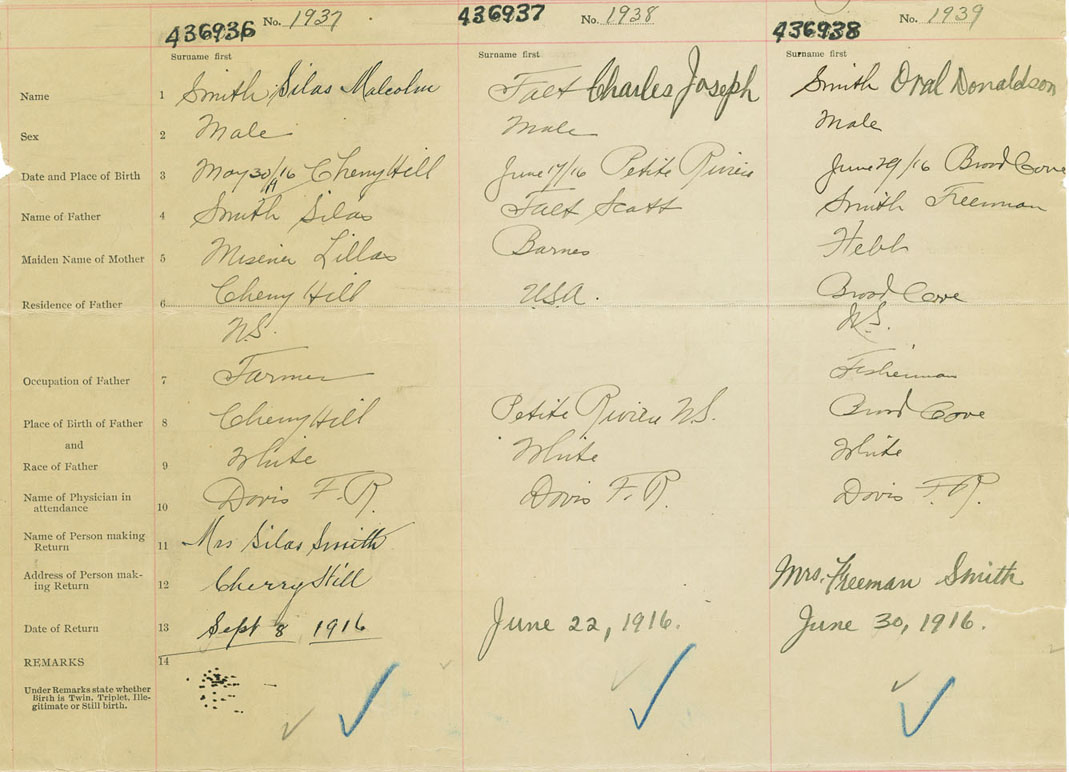 436936 No. 1937 436937 No. 1938 436938 No. 1939
Surname first Surname first Surname first
Name 1 Smith Silas Malcolm Falt Charles Joseph Smith Oral Donaldson
Sex 2 Male Male Male
Date and Place of Birth 3 May 30/16 Cherry Hill June 17/16 Petite Riviere June 29/16 Broad Cove
Name of Father 4 Smith Silas Falt Scott Smith Freeman
Maiden Name of Mother 5 Misener Lillas Barnes Hebb
Residence of Father 6 Cherry Hill U.S.A. Broad Cove
N.S. N.S.
Occupation of Father 7 Farmer Fisherman
Place of Birth of Father 8 Cherry Hill Petite Riviere N.S. Broad Cove
and
Race of Father 9 White White White
Name of Physician in
attendance 10 Davis F. R. Davis F. R. Davis F. R.
Name of Person making
Return 11 Mrs Silas Smith
Address of Person mak-
ing Return 12 Cherry Hill Mrs. Freeman Smith
Date of Return 13 Sept 8 1916 June 22, 1916. June 30, 1916.
REMARKS 14
Under Remarks state whether
Birth is Twin, Triplet, Ille-
gitimate or Still birth.